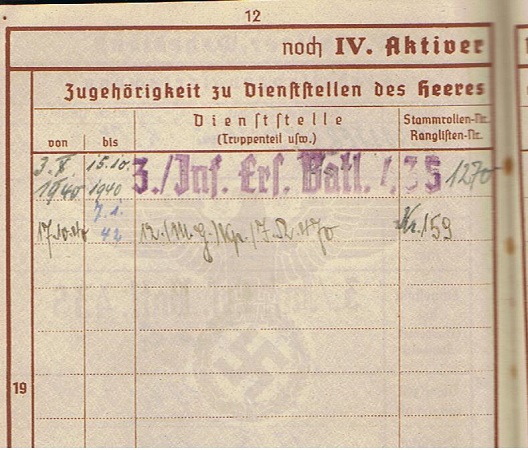 12
noch IV. Aktiver
Zugehörigkeit zu Dienststellen des Heeres
von
bis
Dienststelle
(Truppenteil usw.)
Stammrollen-Nr.
Ranglisten-Nr.
1940
15.10.
1940
3./Inf. Ers. Batl. 435
1270
17.10.40
7.1.
42
12./M.G./Kp./I.R. 470
Nr. 159
19